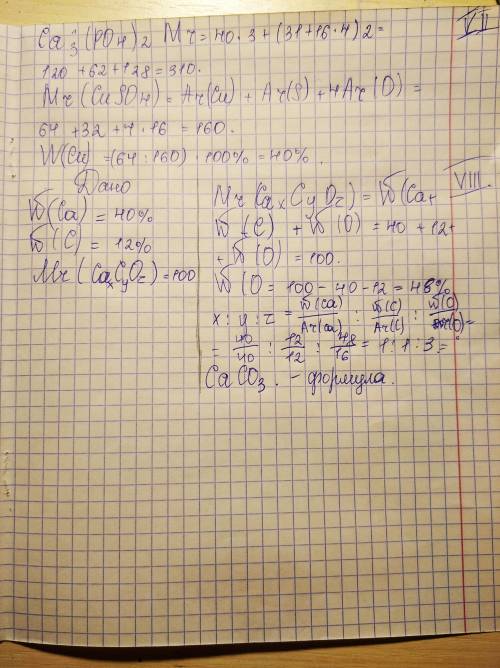 Ca3(PO4)2 Mr = 40·3+(31+16·4)2=
120+62+128=310.
Mr(CuSO4) = Ar(Cu) + Ar(S) + 4Ar(O) =
64+32+4·16=160.
W(Cu) = (64:160)·100%=40%.
VII
Дано
W(Ca) = 40%
W(C) = 12%
Mr(CaxCyOz)=100
VIII.
Mr(CaxCyOz) = W(Ca+
W(C) + W(O) = 40+12+
+W(O) = 100.
W(O = 100-40-12=48%
x:y:z = W(Ca)/Ar(Ca) : W(C)/Ar(C) : W(O)/Ar(O)=
= 40/40 : 12/12 : 48/16 = 1:1:3=
CaCO3. - формула.